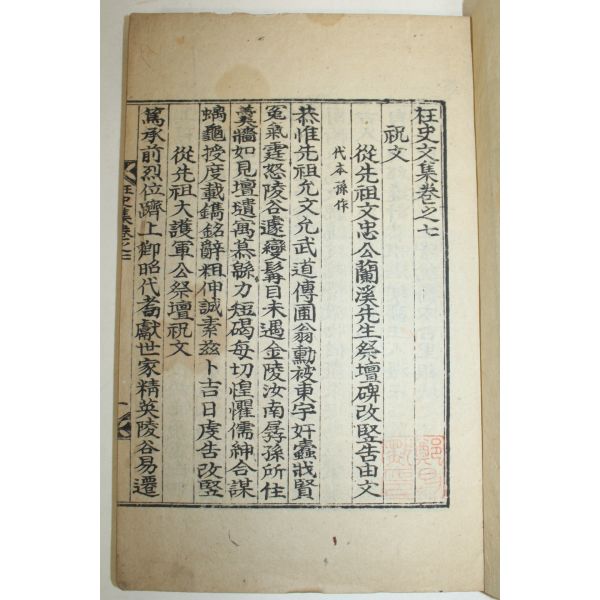 柱史文集卷之七
祝文
從先祖文忠公蘭溪先生祭壇碑改竪告由文
代本孫作
恭惟先祖允文允武道傳圃翁勳被東宇奸蠹戕賢
冤氣霆怒陵谷遽變髯目未遇金陵汝南孱孫所住
羹牆如見壇墠寓慕緜力短碣每切惶懼儒紳合謀
螭龜授度載鐫銘辭粗伸誠素玆卜吉日虔告改竪
從先祖大護軍公祭壇祝文
篤承前烈位躋上卿昭代耇獻世家精英陵谷易遷
柱史集卷之七
一